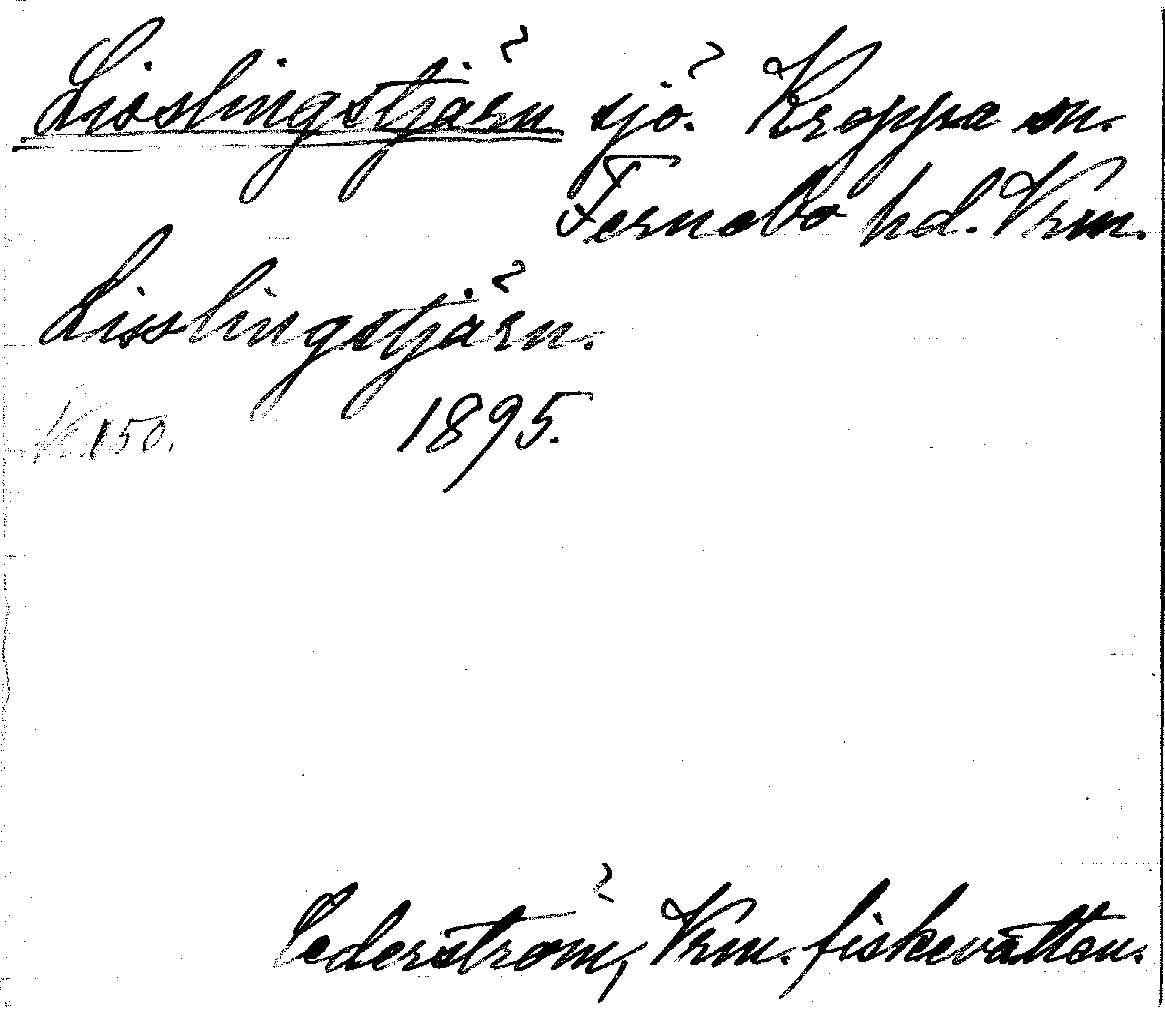 Lisslingstjärn sjö. Kroppa sn.
Fernebo hd. Vrm.
Lisslingstjärn.
150. 1895.
Cederström, Vrm. fiskevatten.